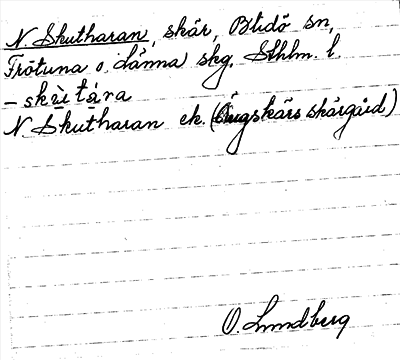 N. Skutharan, skär, Blidö sn,
Frötuna o. Länna skg, Sthlm. l.
– skù̱tá̱ra
N. Skutharan ek. (Ängskärs skärgård)
O. Lundberg